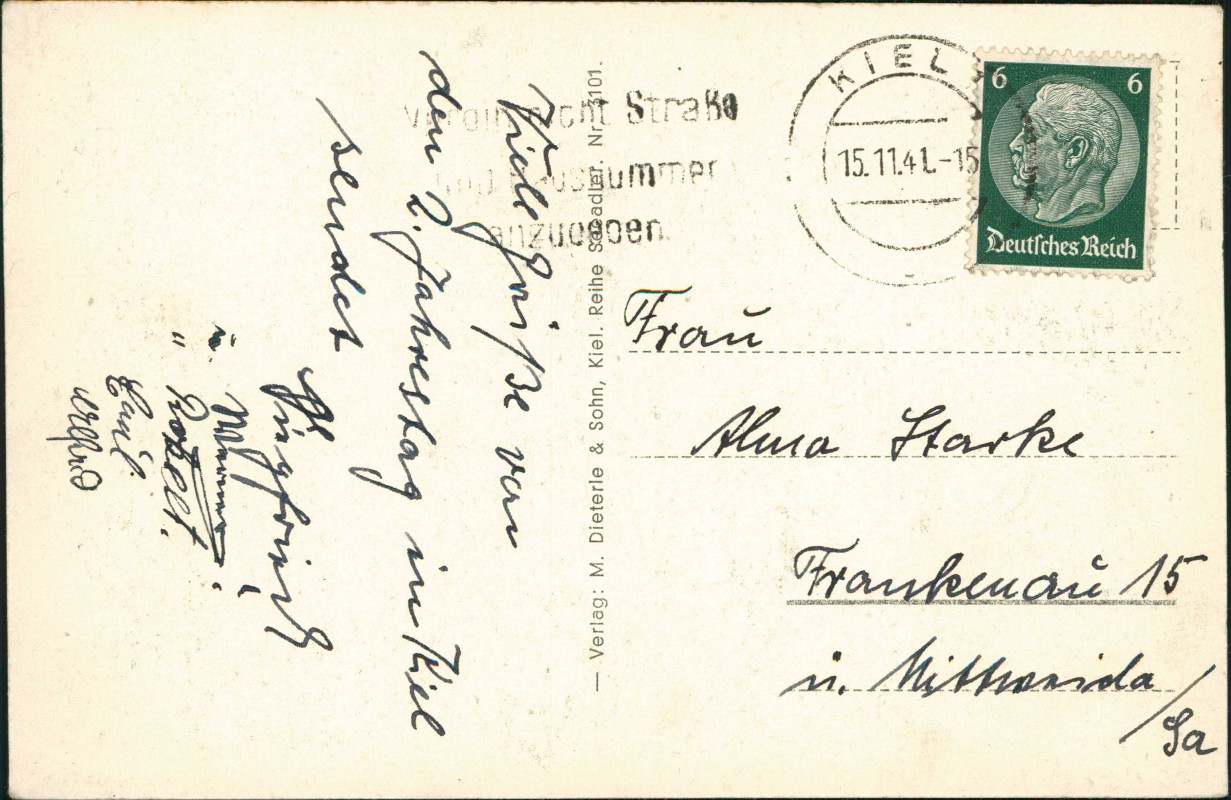 Viele Grüße von
den 2. Jahrestag in Kiel
sendet
Siegfried
u. Werner
" Robert.
Emil
— Verlag: M. Dieterle & Sohn, Kiel. Reihe Seeadler. Nr. 3101.
Straße
Hausnummer
anzugeben
KIEL
15.11.41.-15
6 6
Deutsches Reich
Frau
Alma Starke
Frankenau 15
ü. Mittweida
/Sa